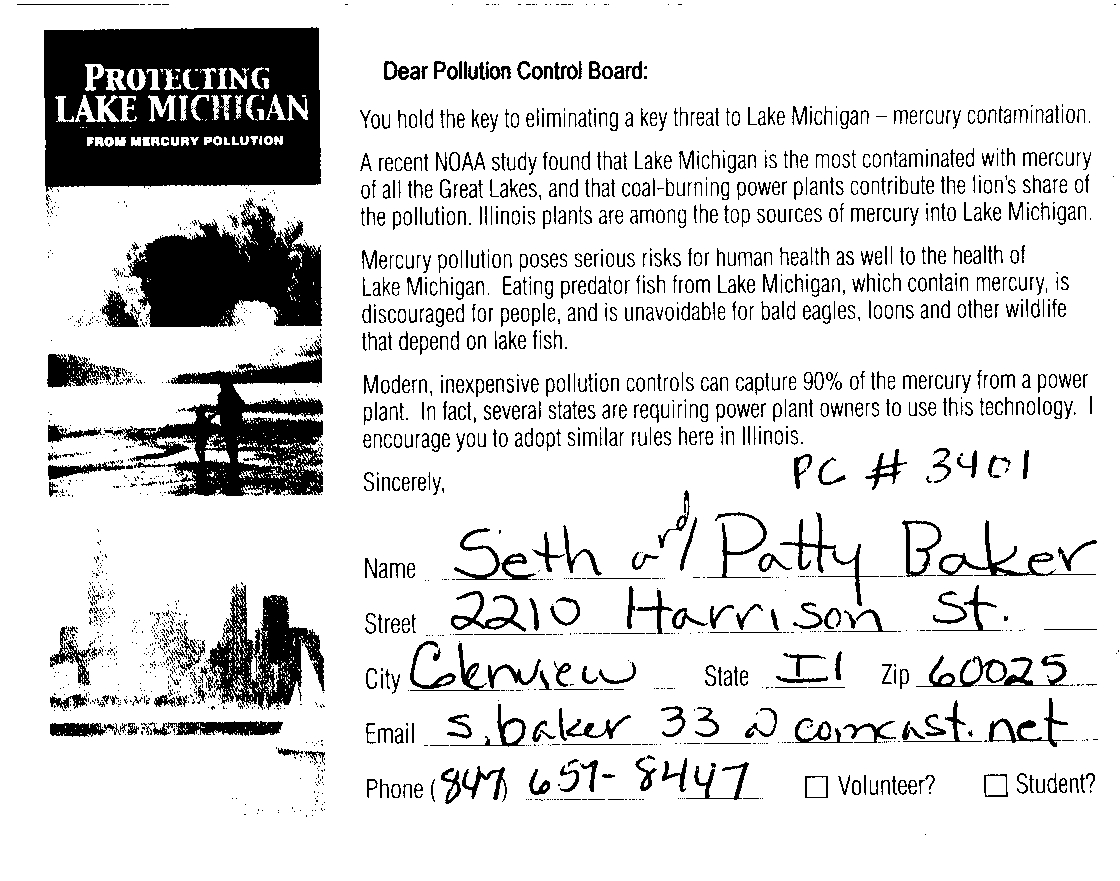 PROTECTING
LAKE MICHIGAN
FROM MERCURY POLLUTION
Dear Pollution Control Board:
You hold the key to eliminating a key threat to Lake Michigan – mercury contamination.
A recent NOAA study found that Lake Michigan is the most contaminated with mercury
of all the Great Lakes, and that coal-burning power plants contribute the lion's share of
the pollution. Illinois plants are among the top sources of mercury into Lake Michigan.
Mercury pollution poses serious risks for human health as well to the health of
Lake Michigan. Eating predator fish from Lake Michigan, which contain mercury, is
discouraged for people, and is unavoidable for bald eagles, loons and other wildlife
that depend on lake fish.
Modern, inexpensive pollution controls can capture 90% of the mercury from a power
plant. In fact, several states are requiring power plant owners to use this technology. I
encourage you to adopt similar rules here in Illinois.
Sincerely,
PC # 3401
Name Seth and Patty Baker
Street 2210 Harrison St.
City Glenview State Il Zip 60025
Email s.baker33@comcast.net
Phone (847) 657-8447 Volunteer? Student?